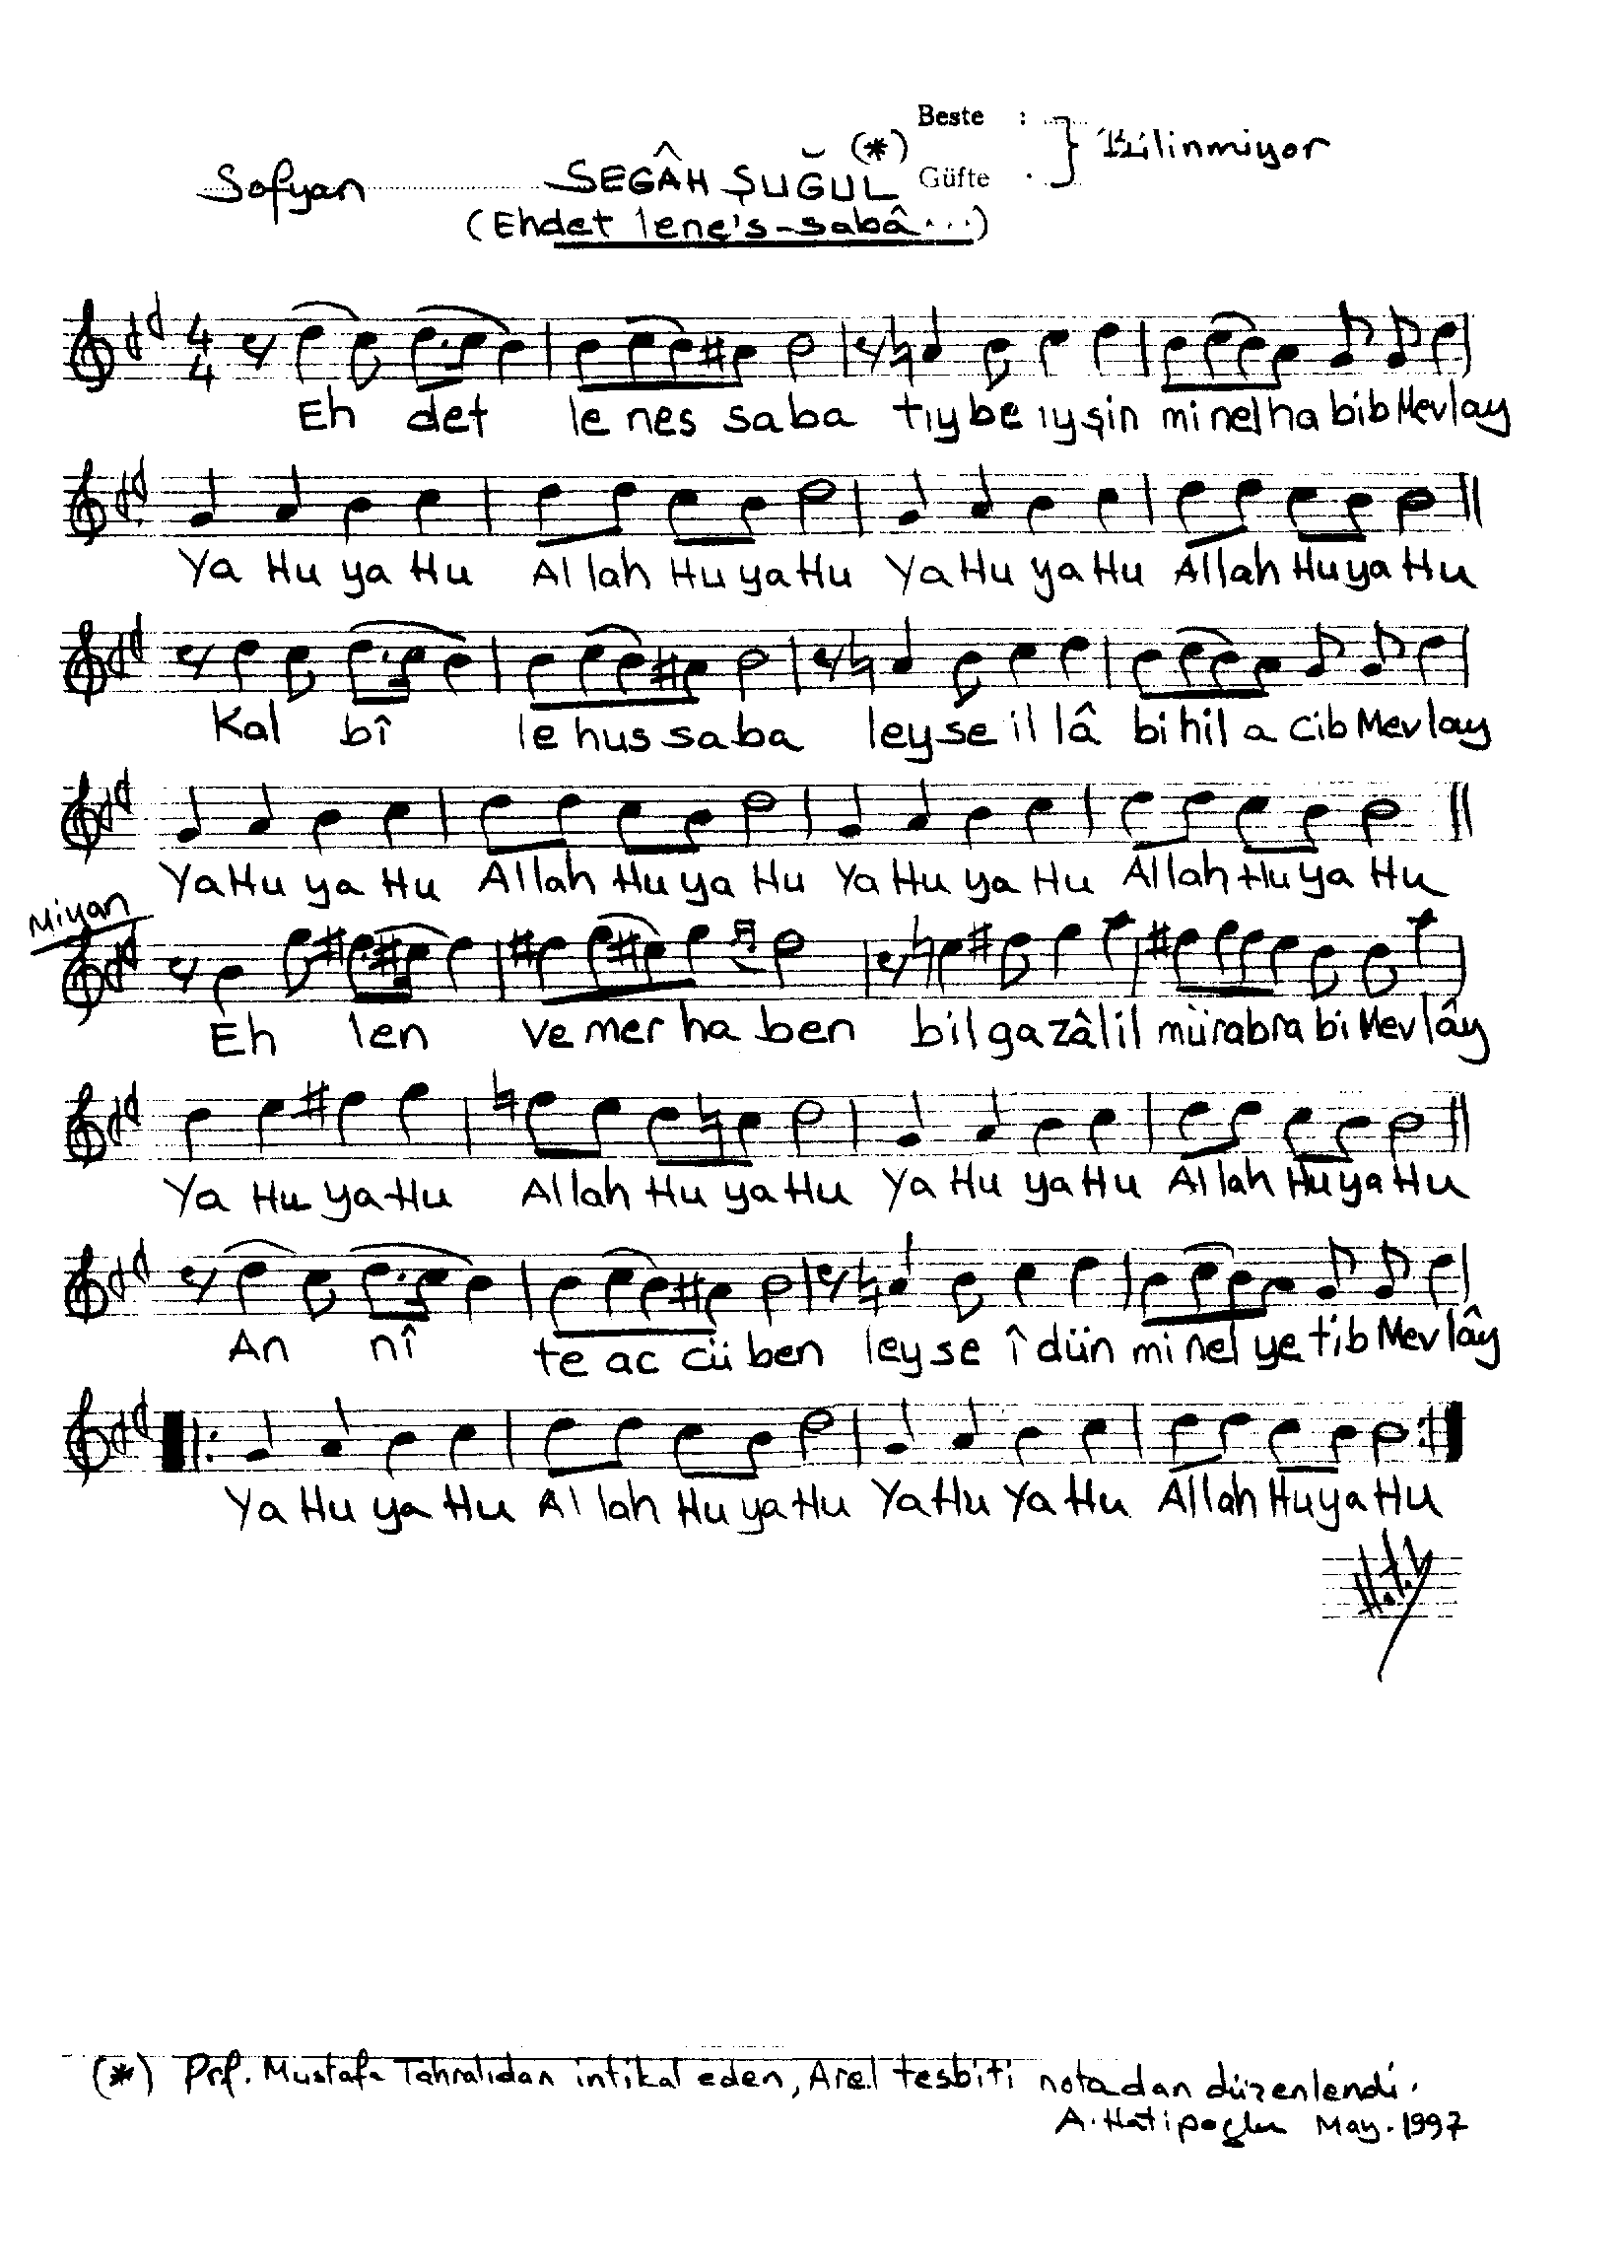 Beste :
Bilinmiyor
Sofyan SEGÂH ŞUĞUL (*) Güfte :
(Ehdet lene's-sabâ...)
4
4
Eh det le nes sa ba tıy be ıy şin mi nel ha bib Mev lay
Ya Hu ya Hu Al lah Hu ya Hu Ya Hu ya Hu Al lah Hu ya Hu
Kal bî le hus sa ba ley se il lâ bi hil a cib Mev lay
Ya Hu ya Hu Al lah Hu ya Hu Ya Hu ya Hu Al lah Hu ya Hu
Miyan
Eh len ve mer ha ben bil ga zâ lil mü rab ra bi Mev lây
Ya Hu ya Hu Al lah Hu ya Hu Ya Hu ya Hu Al lah Hu ya Hu
An nî te ac cü ben ley se î dün mi nel ye tib Mev lây
Ya Hu ya Hu Al lah Hu ya Hu Ya Hu Ya Hu Al lah Hu ya Hu
(*) Prf. Mustafa Tahralıdan intikal eden, Arel tesbiti notadan düzenlendi.
A. Hatipoğlu May. 1997